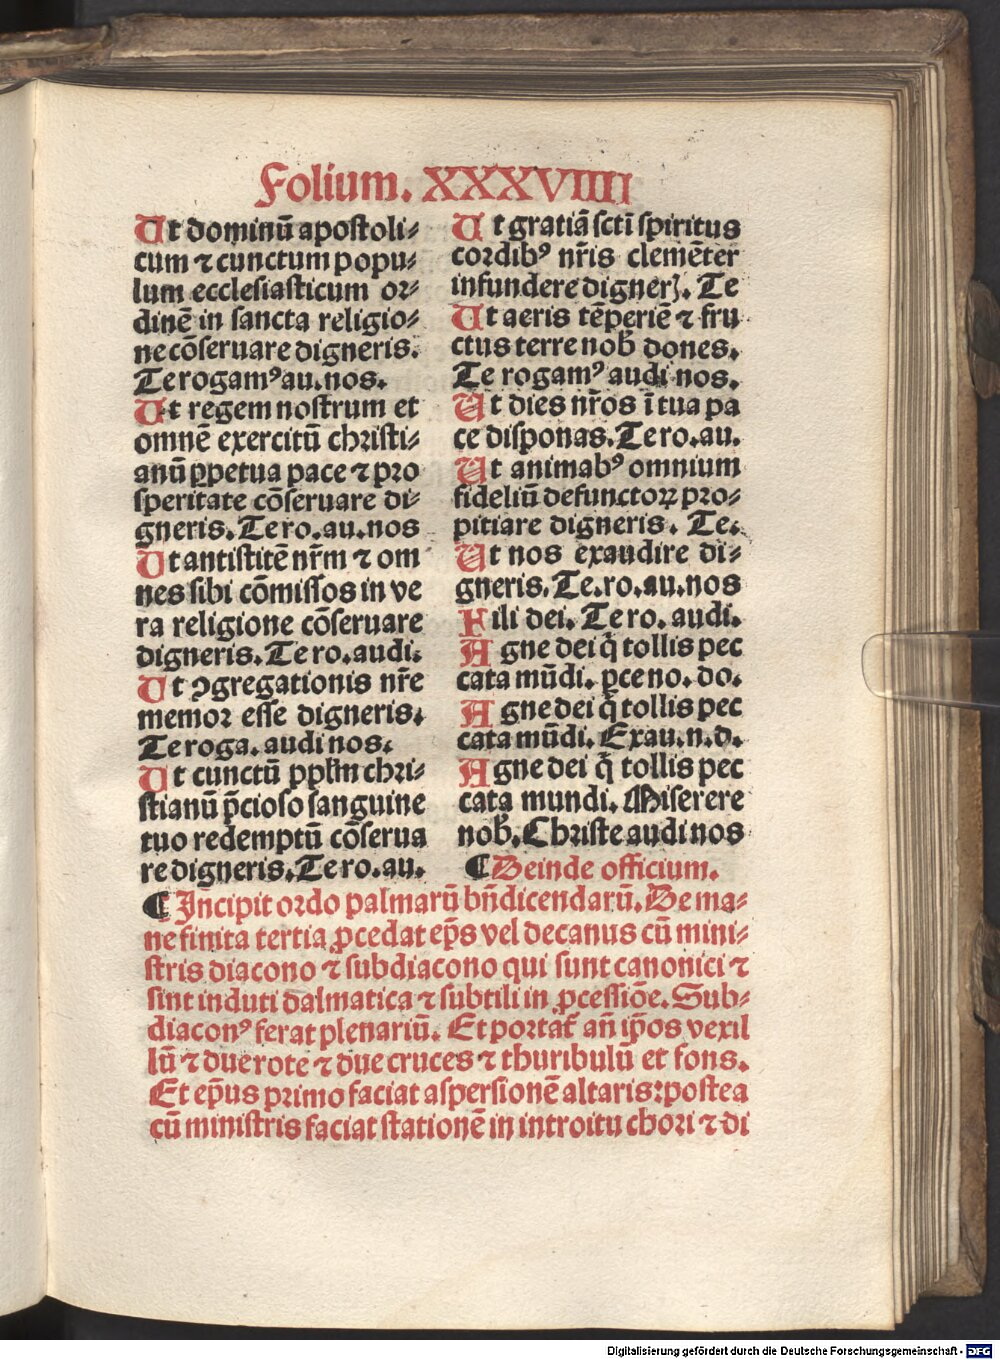 Folium. XXXVIIII
Ut dominū apostoli⸗
cum ⁊ cunctum popu⸗
lum ecclesiasticum or⸗
dinē in sancta religio⸗
ne cōseruare digneris.
Te rogamꝰ au. nos.
Ut regem nostrum et
omnē exercitū christi⸗
anū ꝑpetua pace ⁊ pro
speritate cōseruare di⸗
gneris. Te ro. au. nos
Ut antistitē nr̄m ⁊ om
nes sibi cōmissos in ve
ra religione cōseruare
digneris. Te ro. audi.
Ut ꝯgregationis nr̄e
memor esse digneris.
Te roga. audi nos.
Ut cunctū ppl̄m chri⸗
stianū p̄cioso sanguine
tuo redemptū cōserua
re digneris. Te ro. au.
Ut gratiā sctī spiritus
cordibꝰ nr̄is clemēter
infundere digner̄. Te
Ut aeris tēperiē ⁊ fru
ctus terre nob̄ dones.
Te rogamꝰ audi nos.
Ut dies nr̄os ī tua pa
ce disponas. Te ro. au.
Ut animabꝰ omnium
fideliū defunctoꝝ pro⸗
pitiare digneris. Te.
Ut nos exaudire di⸗
gneris. Te. ro. au. nos
Fili dei. Te ro. audi.
Agne dei q̄ tollis pec
cata mūdi. ꝑce no. do.
Agne dei q̄ tollis pec
cata mūdi. Exau. n. d.
Agne dei q̄ tollis pec
cata mundi. Miserere
nob̄. Christe audi nos
¶ Deinde officium.
¶ Incipit ordo palmarū bn̄dicendarū. De ma⸗
ne finita tertia ꝓcedat ep̄s vel decanus cū mini⸗
stris diacono ⁊ subdiacono qui sunt canonici ⁊
sint induti dalmatica ⁊ subtili in ꝓcessiōe. Sub⸗
diaconꝰ ferat plenariū. Et portāt an̄ ip̄os vexil
lū ⁊ due rote ⁊ due cruces ⁊ thuribulū et fons.
Et ep̄us primo faciat aspersionē altaris: postea
cū ministris faciat stationē in introitu chori ⁊ di
Digitalisierung gefördert durch die Deutsche Forschungsgemeinschaft - DFG